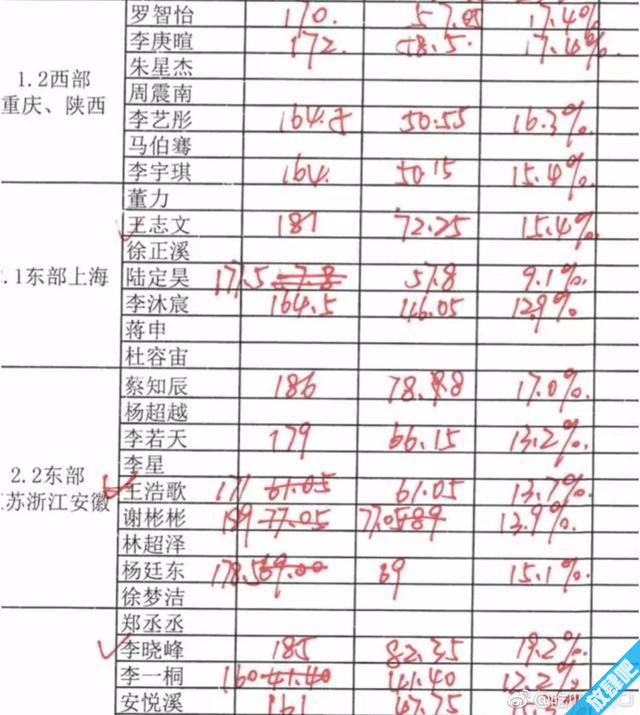 罗智怡 170. 57.05 17.4%
李庚暄 172. 48.5. 17.4%
朱星杰
1.2西部
周震南
重庆、陕西
李艺彤 164.5 50.55 16.3%.
马伯骞
李宇琪 164. 50.15 15.4%.
董力
王志文 181 72.25 15.4%.
徐正溪
.1东部上海 陆定昊 177.5 57.8 9.1%.
李沐宸 164.5 46.05 12.9%.
蒋申
杜容宙
蔡知辰 186 17.0%.
杨超越
李若天 179 66.15 13.2%.
2.2东部 李星
苏浙江安徽 王浩歌 171 61.05 61.05 13.7%.
谢彬彬 77.05 13.9%.
林超泽
杨廷东 178.5 69.00 69 15.1%.
徐梦洁
郑丞丞
李晓峰 185 82.35 19.2%.
李一桐 160 41.40 41.40 12.2%.
安悦溪 161 47.75
放肆吧